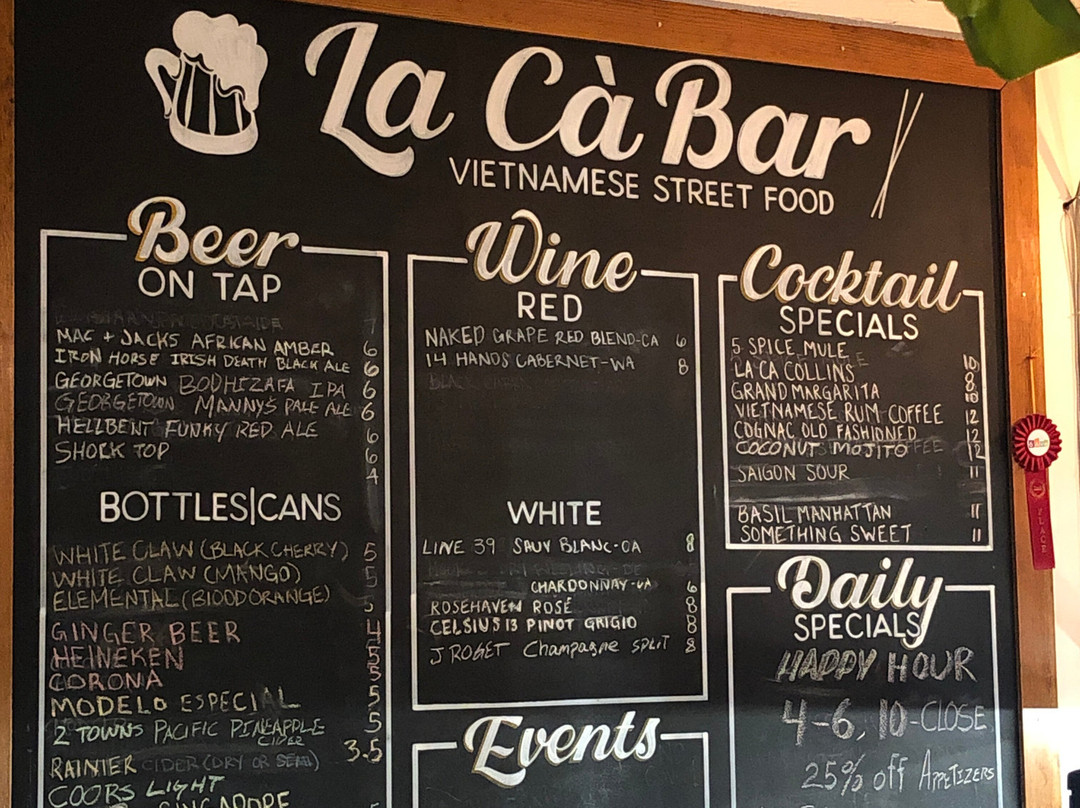 La Cà Bar
VIETNAMESE STREET FOOD
Beer
ON TAP
7
MAC + JACKS AFRICAN AMBER 6
IRON HORSE IRISH DEATH BLACK ALE 6
GEORGETOWN BODHIZAFA IPA 6
GEORGETOWN MANNY'S PALE ALE 6
HELLBENT FUNKY RED ALE 6
SHOCK TOP 6
4
BOTTLES|CANS
WHITE CLAW (BLACK CHERRY) 5
WHITE CLAW (MANGO) 5
ELEMENTAL (BLOOD ORANGE) 5
GINGER BEER 4
HEINEKEN 5
CORONA 5
MODELO ESPECIAL 5
2 TOWNS PACIFIC PINEAPPLE 5
CIDER
RAINIER CIDER (DRY OR SEMI) 3.5
COORS LIGHT
SINGAPORE 5
Wine
RED
NAKED GRAPE RED BLEND-CA 6
14 HANDS CABERNET-WA 8
WHITE
LINE 39 SAUV BLANC-CA 8
CHARDONNAY-WA 6
ROSEHAVEN ROSÉ 8
CELSIUS 13 PINOT GRIGIO 8
J ROGET Champagne SPLIT 8
Events
Cocktail
SPECIALS
5 SPICE MULE 10
LA CA COLLINS 8
GRAND MARGARITA 8
10
VIETNAMESE RUM COFFEE 12
COGNAC OLD FASHIONED 12
COCONUT MOJITO 12
SAIGON SOUR 11
BASIL MANHATTAN 11
SOMETHING SWEET 11
Daily
SPECIALS
HAPPY HOUR
4-6, 10-CLOSE
25% off APPETIZERS
PLACE